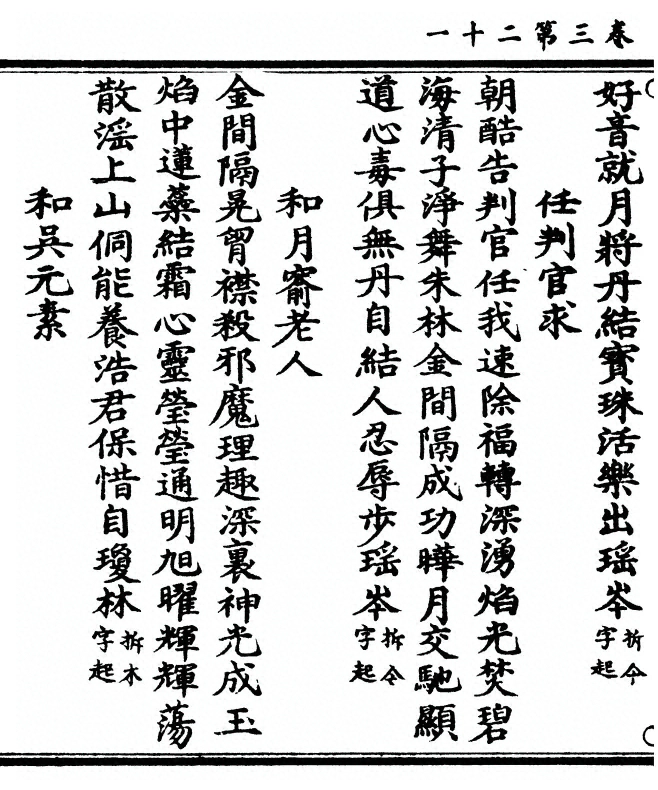 卷三第二十一
好音就月將丹結寶珠活樂出瑶岑拆今字起
任判官求
朝酷告判官任我速除福轉深湧焰光焚碧
海清子淨舞朱林金間隔成功曄月交馳顯
道心毒俱無丹自結人忍辱步瑶岑拆令字起
和月窬老人
金間隔晃胷襟殺邪魔理趣深裏神光成玉
焰中蓮蘂結霜心靈瑩瑩通明旭曜輝輝蕩
散滛上山侗能養浩君保惜自瓊林拆木字起
和吳元素